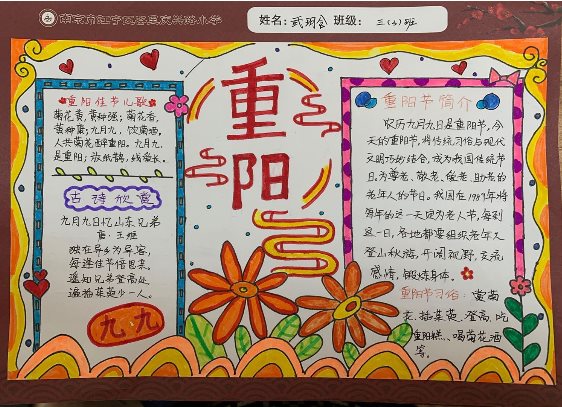 姓名：武玥含 班级：三（4）班
重阳
重阳佳节儿歌
菊花黄，黄种强；菊花香，
黄种康；九月九，饮菊酒，
人共菊花醉重阳。九月九，
是重阳；放纸鹞，线爱长。
古诗欣赏
九月九日忆山东兄弟
唐·王维
独在异乡为异客，
每逢佳节倍思亲。
遥知兄弟登高处，
遍插茱萸少一人。
九九
重阳节简介
农历九月九日是重阳节，今
天的重阳节，将传统习俗与现代
文明巧妙结合，成为我国传统节
日，为尊老、敬老、爱老、助老的
老年人的节日。我国在1989年将
每年的这一天定为老人节，每到
这一日，各地都要组织老年人
登山秋游，开阔视野，交流
感情，锻炼身体。
重阳节习俗：赏菊
花、插茱萸、登高、吃
重阳糕、喝菊花酒
等。